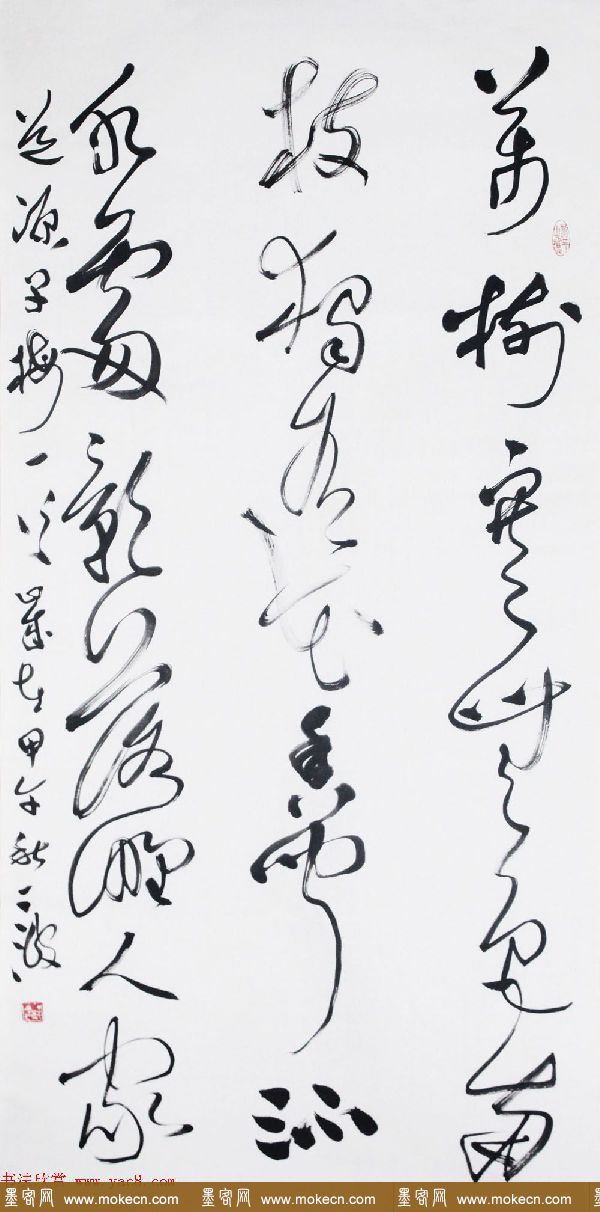 萬樹寒無色南
枝獨有花香聞流
水處影落野人家
道源早梅一首歲在甲午秋
书法欣赏 www.yac8.com
墨客网 www.mokecn.com 墨客网 www.mokecn.com 墨客网 www.mokecn.com